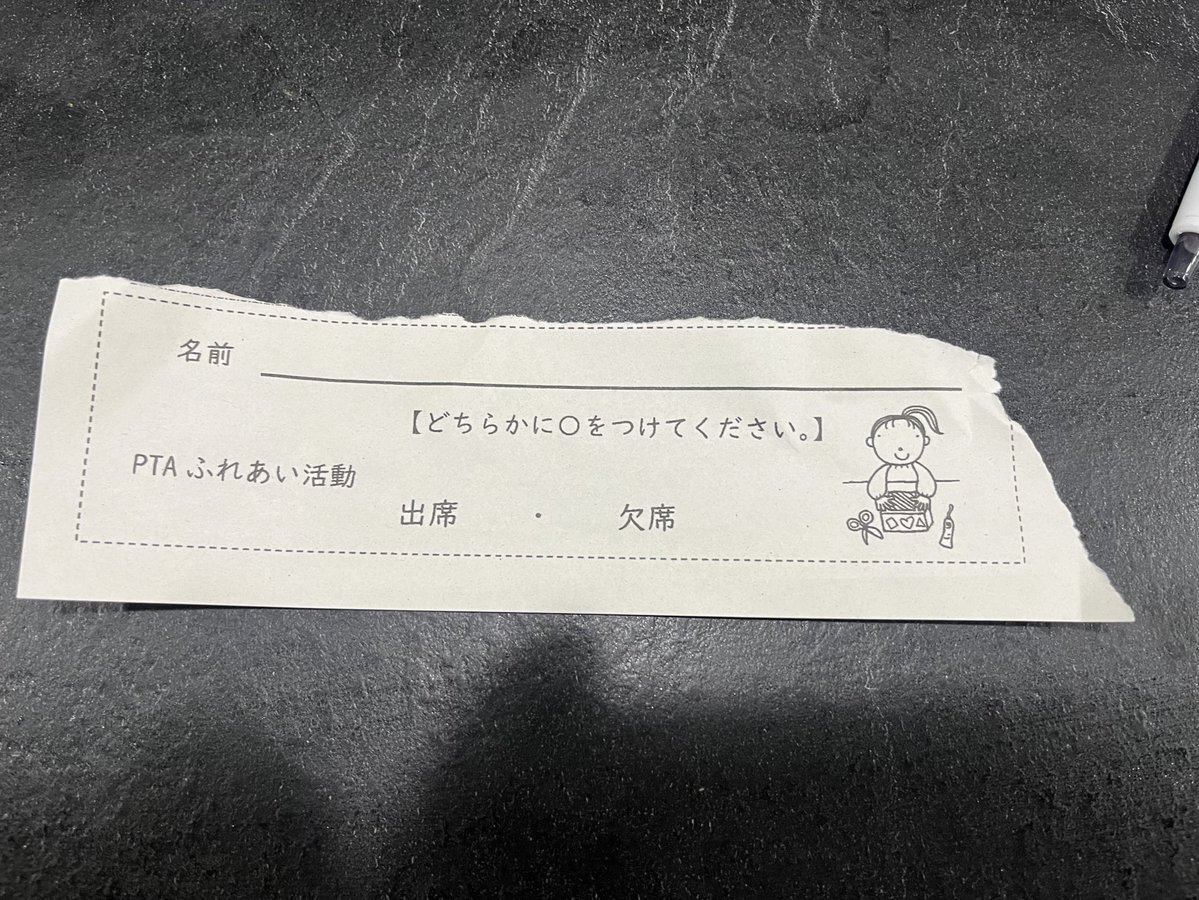 名前
【どちらかに〇をつけてください。】
PTA ふれあい活動
出席 ・ 欠席